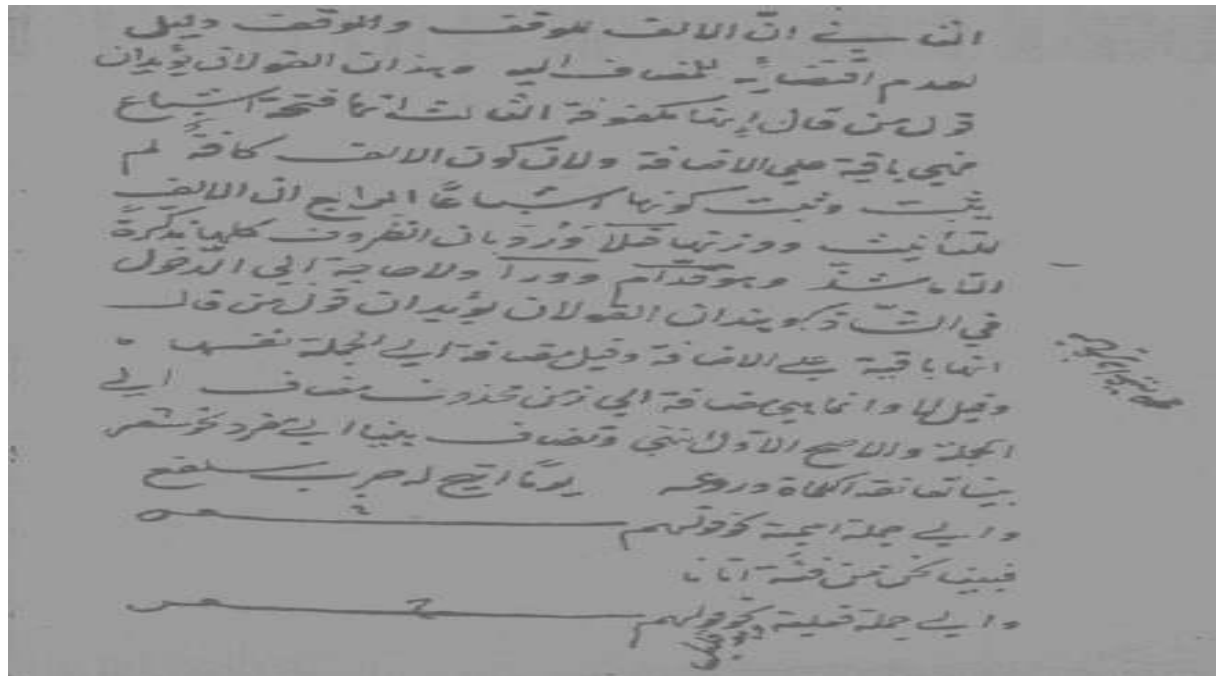 الثاني ان الالف للوقف والوقف دليل
لعدم اقتضائه للمضاف اليه وهذان القولان يؤيدان
قول من قال انها مكفوفة الثالث انها فتحة اشباع
فهي باقية علي الاضافة ولان كون الالف كافة لم
يثبت وثبت كونها اشباعا الرابع ان الالف
للتأنيث ووزنها فعلا ورد بان الظروف كلها مذكرة
الا ما شذ وهو قدام وورا ولا حاجة الي الدخول
في الشاذ وهذان القولان يؤيدان قول من قال
انها باقية علي الاضافة وقيل مضافة الي الجملة نفسها
وقيل انما هي مضافة الي زمن محذوف مضاف الي
الجملة والاصح الاول وتضاف بينا الي مفرد نحو شعر
بينا تعانقه الكماة وروغه يوما اتيح له جري سلفع
والي جملة اسمية كقولهم شعر
فبينا نحن من فئة اتانا
والي جملة فعلية كقولهم شعر